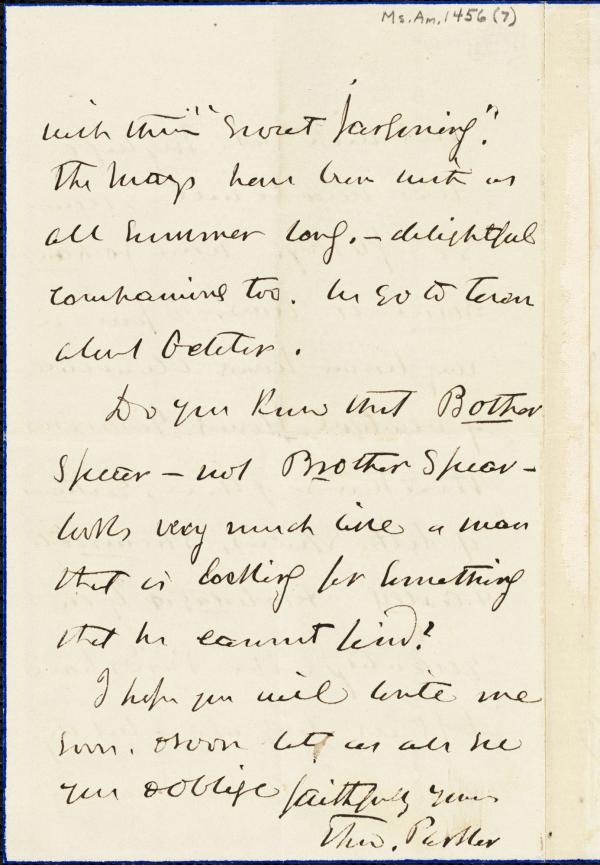 Ms. Am. 1456 (7)
with their "sweet jargoning".
The Mays have been with us
all summer long. — delightful
companions too. We go to town
about October.
Do you know that Bother
Spear — not Brother Spear —
looks very much like a man
that is looking for something
that he cannot find?
I hope you will write me
soon. & soon let us all see
you & oblige faithfully yours
Theo. Parker